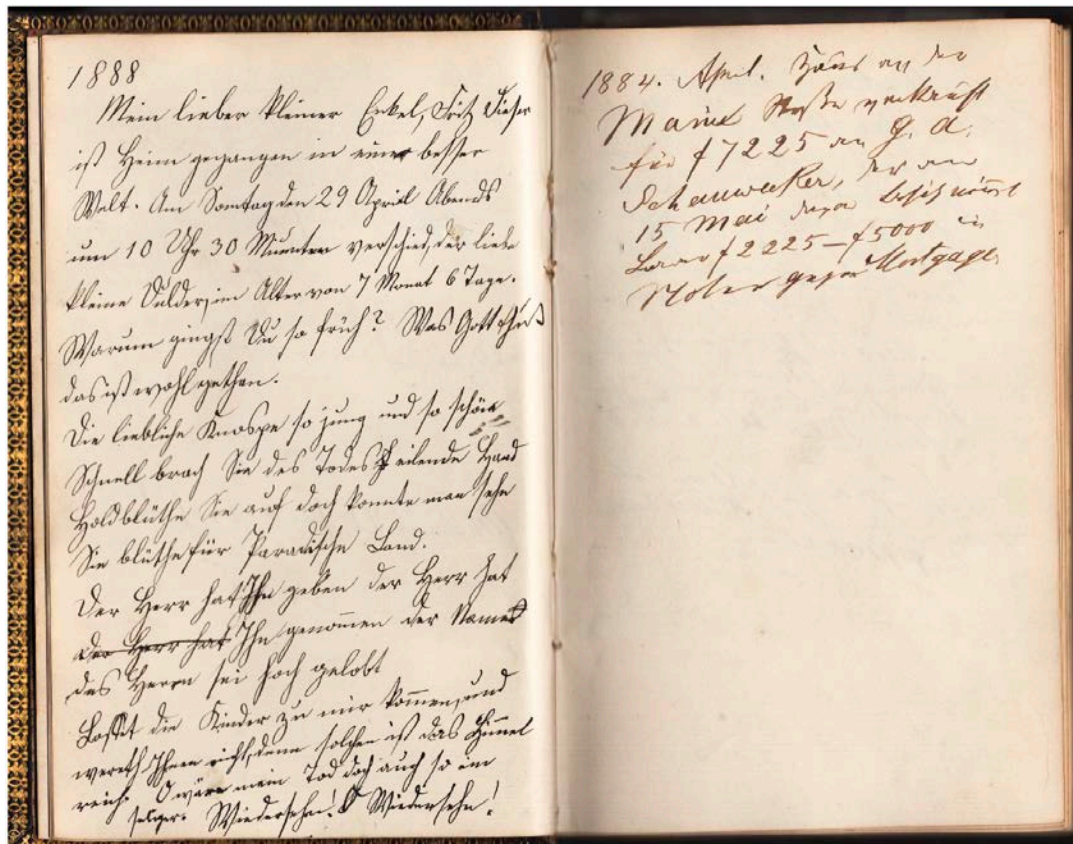 1888
Mein lieber kleiner Enkel, Fritz Dieser
ist Heim gegangen in einer besser
Welt. Am Sonntag den 29 April Abends
um 10 Uhr 30 Minuten verschied, der liebe
kleine Dulder, im Alter von 7 Monat 6 Tage.
Warum gingst Du so früh? Was Gott thut
das ist wohl gethan.
Die liebliche Knospe so jung und so schön
Schnell brach Sie des Todes eilende Hand
Hold blüthe Sie auf doch konnte man sehn
Sie blüthe für Paradische Land.
Der Herr hat Ihn geben der Herr hat
der Herr hat Ihn genommen der Name
des Herrn sei hoch gelobt
Lasset die Kinder zu mir kommen, und
wereth Ihnen nicht, denn solchen ist das Himmel
reich. O wäre mein Tod doch auch so ein
seliger. Wiedersehn! O Wiedersehn!
1884. April. Haus an der
Maine Straße verkauft
für $7225 an G. A.
Schauweker, der am
15 Mai davon besitz nimmt
$2225 – $5000 in
Noten gegen Mortgage